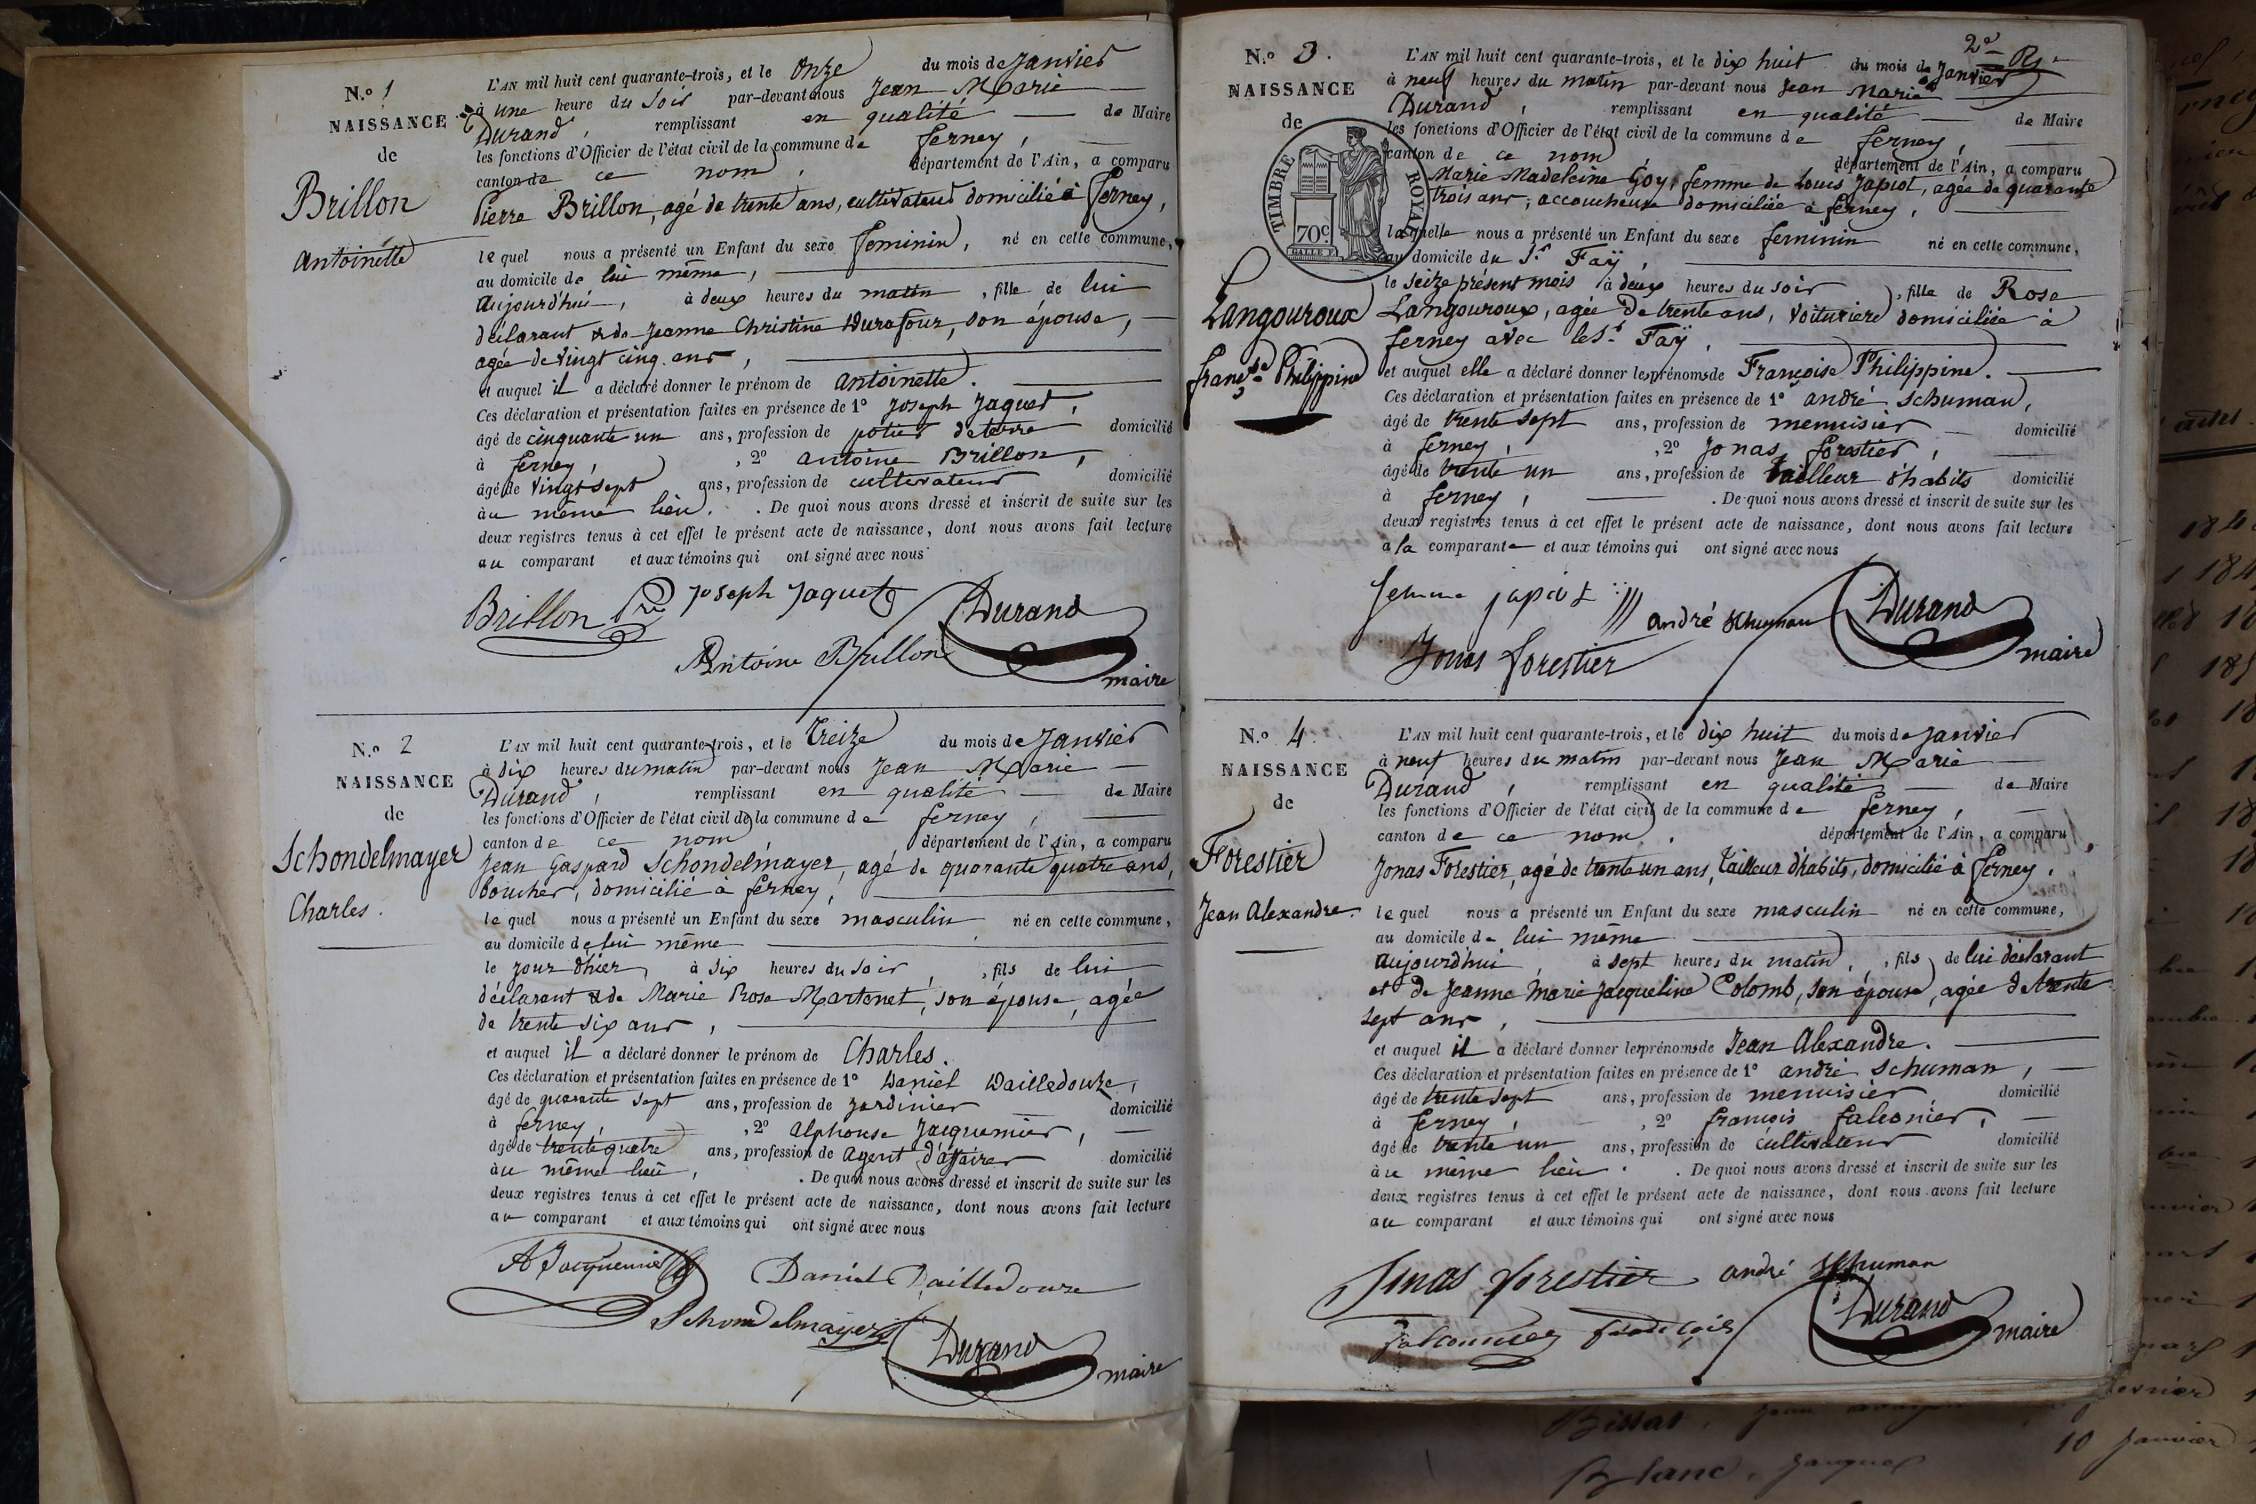 N.o 1
NAISSANCE
de
Brillon
Antoinette
L'AN mil huit cent quarante-trois, et le onze du mois de Janvier
à une heure du soir par-devant nous Jean Marie
Durand, remplissant en qualité de Maire
les fonctions d'Officier de l'état civil de la commune de ferney,
canton de ce nom, département de l'Ain, a comparu
Pierre Brillon, agé de trente ans, cultivateur domicilié à ferney,
lequel nous a présenté un Enfant du sexe feminin, né en cette commune,
au domicile de lui même,
aujourd'hui, à deux heures du matin, fille de lui
déclarant & de Jeanne Christine Durafour, son épouse,
agée de vingt cinq ans,
et auquel il a déclaré donner le prénom de antoinette.
Ces déclaration et présentation faites en présence de 1o Joseph Jaquet,
âgé de cinquante un ans, profession de potier de terre domicilié
à ferney, , 2o antoine Brillon,
âgé de vingt sept ans, profession de cultivateur domicilié
au même lieu. . De quoi nous avons dressé et inscrit de suite sur les
deux registres tenus à cet effet le présent acte de naissance, dont nous avons fait lecture
au comparant et aux témoins qui ont signé avec nous
Brillon Pre Joseph Jaquet Durand
Antoine Brillon maire
N.o 2
NAISSANCE
de
Schondelmayer
Charles.
L'AN mil huit cent quarante-trois, et le treize du mois de Janvier
à dix heures du matin par-devant nous Jean Marie
Durand, remplissant en qualité de Maire
les fonctions d'Officier de l'état civil de la commune de ferney,
canton de ce nom, département de l'Ain, a comparu
Jean Gaspard Schondelmayer, agé de quarante quatre ans,
boucher, domicilié à ferney,
lequel nous a présenté un Enfant du sexe masculin né en cette commune,
au domicile de lui même
le jour d'hier, à six heures du soir, , fils de lui
déclarant & de Marie Rose Martenet, son épouse, agée
de trente six ans,
et auquel il a déclaré donner le prénom de Charles.
Ces déclaration et présentation faites en présence de 1o Daniel Dailledouze,
âgé de quarante sept ans, profession de jardinier domicilié
à ferney, , 2o alphonse Jacquemier,
âgé de trente quatre ans, profession de agent d'affaires domicilié
au même lieu, . De quoi nous avons dressé et inscrit de suite sur les
deux registres tenus à cet effet le présent acte de naissance, dont nous avons fait lecture
au comparant et aux témoins qui ont signé avec nous
A Jacquemier Daniel Dailledouze
Schondelmayer Durand
maire
2e
N.o 3.
NAISSANCE
de
TIMBRE ROYAL
70c.
Langouroux
françse Philippine
L'AN mil huit cent quarante-trois, et le dix huit du mois de Janvier
à neuf heures du matin par-devant nous Jean Marie
Durand, remplissant en qualité de Maire
les fonctions d'Officier de l'état civil de la commune de ferney,
canton de ce nom département de l'Ain, a comparu
Marie Madeleine Goy, femme de Louis Japiot, agée de quarante
trois ans, accoucheuse domiciliée à ferney,
laquelle nous a présenté un Enfant du sexe feminin né en cette commune,
au domicile du Sr. Faÿ,
le seize présent mois à deux heures du soir, fille de Rose
Langouroux, agée de trente ans, voituriere domiciliée à
ferney avec le Sr. Faÿ,
et auquel elle a déclaré donner les prénoms de Françoise Philippine.
Ces déclaration et présentation faites en présence de 1o andré Schuman,
âgé de trente sept ans, profession de menuisier domicilié
à ferney, , 2o Jonas forestier,
âgé de trente un ans, profession de tailleur d'habits domicilié
à ferney, . De quoi nous avons dressé et inscrit de suite sur les
deux registres tenus à cet effet le présent acte de naissance, dont nous avons fait lecture
a la comparante et aux témoins qui ont signé avec nous
femme japiot andré schuman Durand
Jonas forestier maire
N.o 4.
NAISSANCE
de
Forestier
Jean Alexandre.
L'AN mil huit cent quarante-trois, et le dix huit du mois de Janvier
à neuf heures du matin par-devant nous Jean Marie
Durand, remplissant en qualité de Maire
les fonctions d'Officier de l'état civil de la commune de ferney,
canton de ce nom. département de l'Ain, a comparu
Jonas Forestier, agé de trente un ans, tailleur d'habits, domicilié à ferney,
lequel nous a présenté un Enfant du sexe masculin né en cette commune,
au domicile de lui même
aujourd'hui, à sept heures du matin, , fils de lui déclarant
et de Jeanne Marie Jacqueline Colomb, son épouse, agée de trente
sept ans,
et auquel il a déclaré donner les prénoms de Jean Alexandre.
Ces déclaration et présentation faites en présence de 1o andré Schuman,
âgé de trente sept ans, profession de menuisier domicilié
à ferney, , 2o françois falconier,
âgé de trente un ans, profession de cultivateur domicilié
au même lieu. . De quoi nous avons dressé et inscrit de suite sur les
deux registres tenus à cet effet le présent acte de naissance, dont nous avons fait lecture
au comparant et aux témoins qui ont signé avec nous
Jonas forestier andré schuman
falconnier françois Durand
maire
Bissat, Jean
10 Janvier
Blanc, Jacques